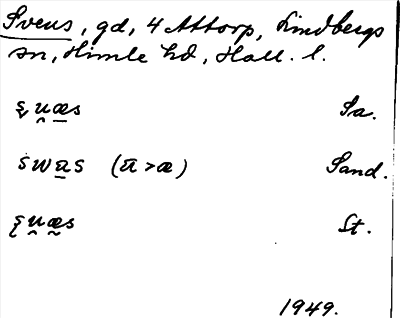 Svens, gd, 4 Attorp, Lindbergs
sn, Himle hd, Hall. l.
s̨u̯æ̱s Sa.
swa̱s (a>æ) Sand.
s̨u̯æ̰s St.
1949.